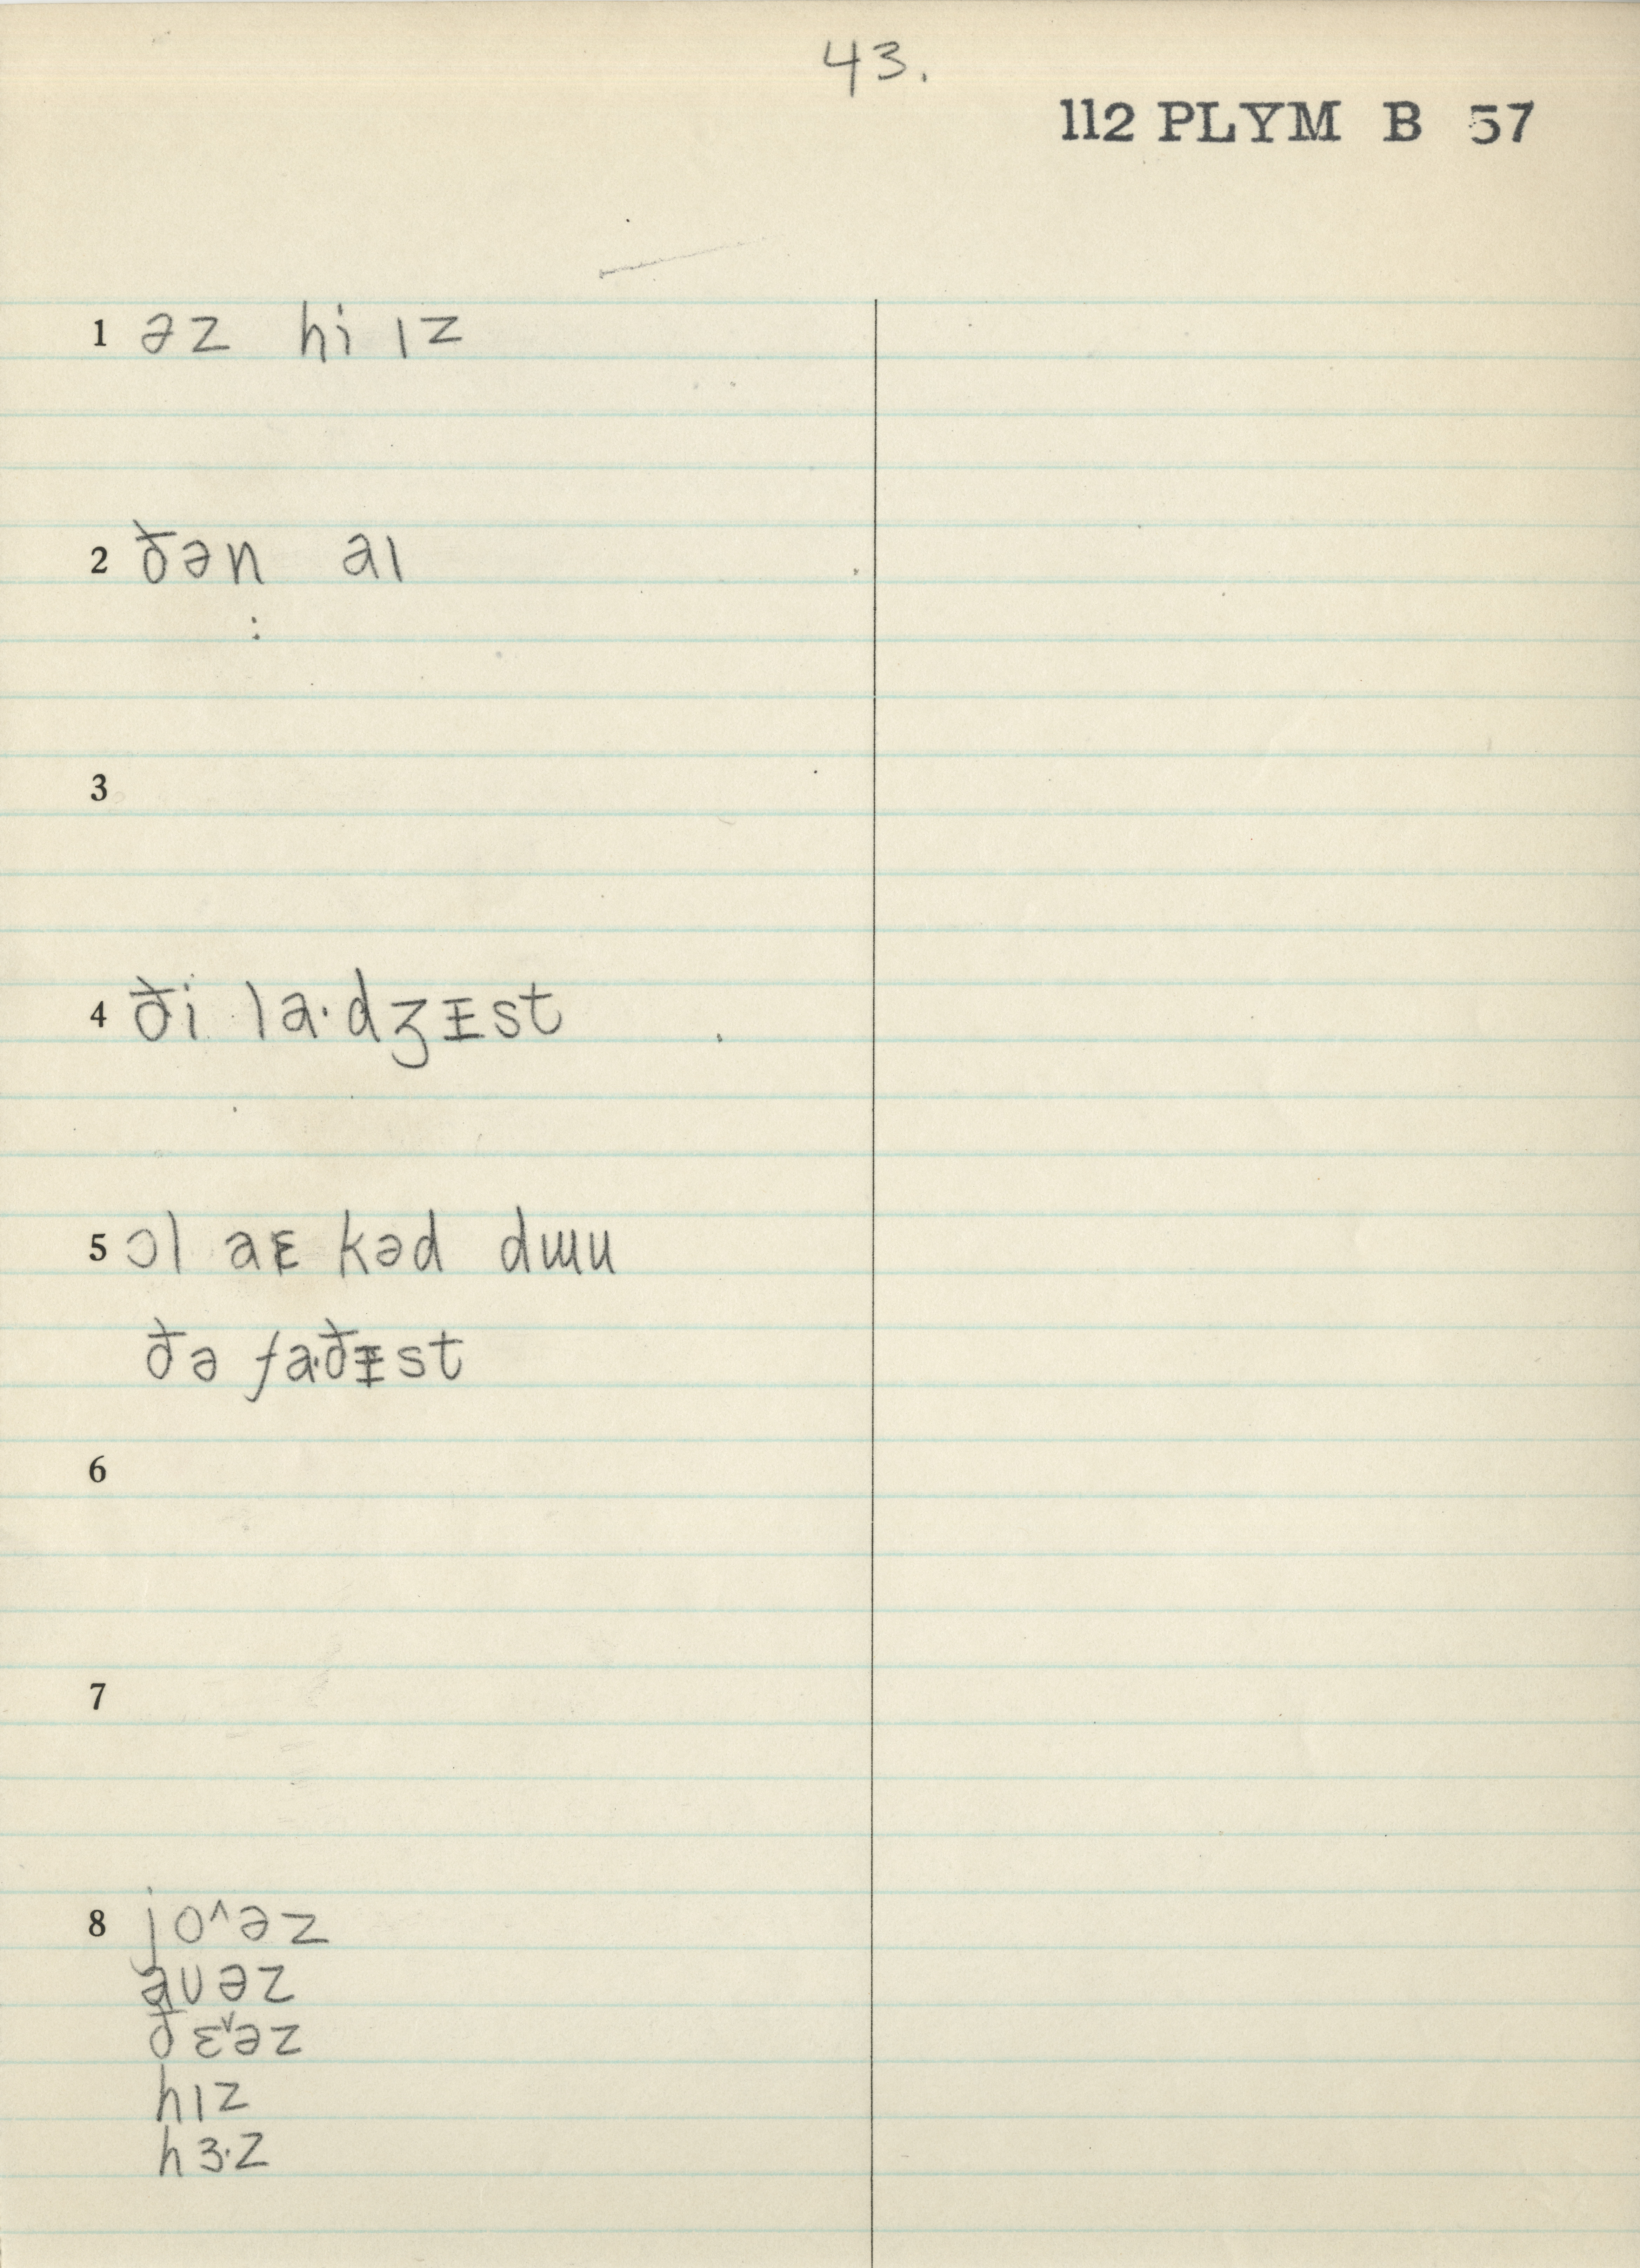 43.
112 PLYM B 57
1 əz hi ɪz
2 ðən aɪ
3
4 ði la·dʒᵻst
5 ɔl aɛ kəd dɯu
ðə fa·ðᵻst
6
7
8 jo^əz
auəz
ðɛˇəz
hɪz
hɜ·z